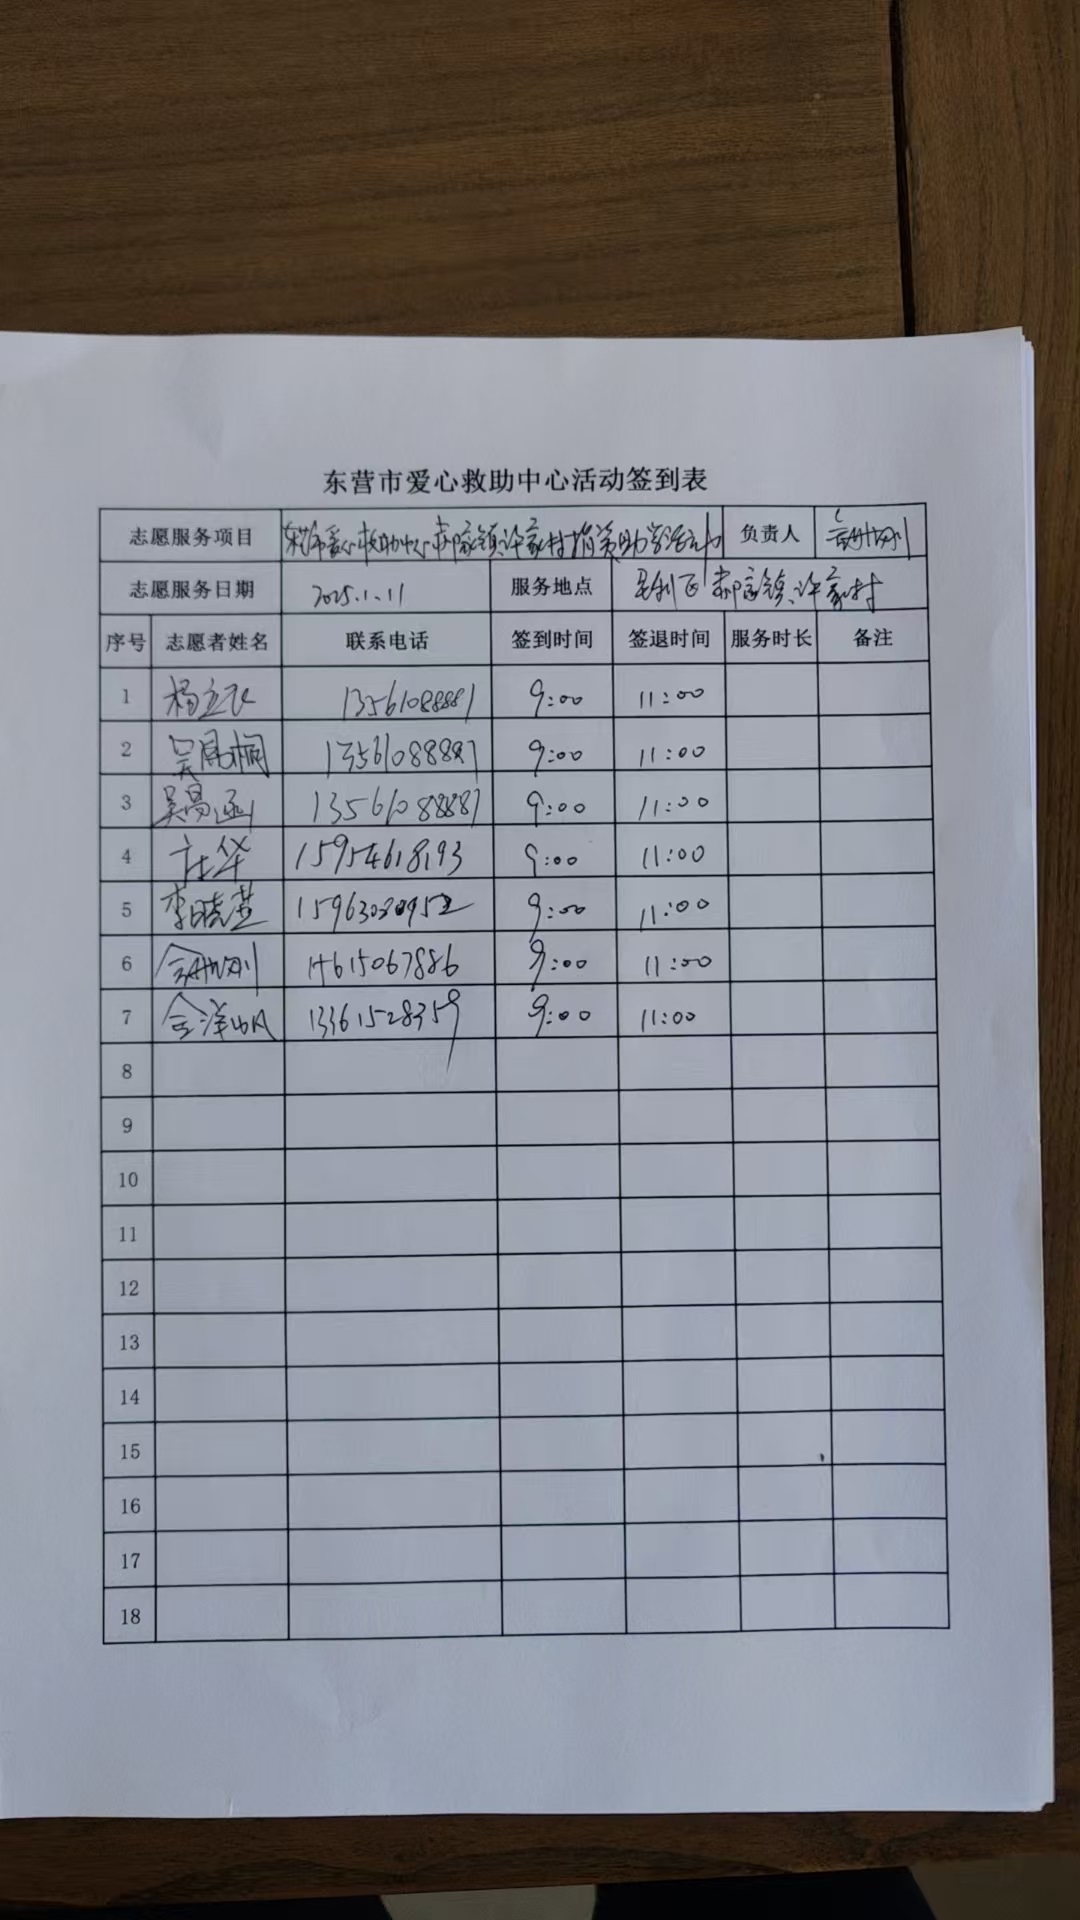 东营市爱心救助中心活动签到表
志愿服务项目 东营市爱心救助中心郝家镇许家村捐资助学活动 负责人
志愿服务日期 2025.1.11 服务地点 垦利区郝家镇许家村
序号 志愿者姓名 联系电话 签到时间 签退时间 服务时长 备注
1 杨立民 13561088881 9:00 11:00
2 吴凤桐 13561088887 9:00 11:00
3 吴昌函 13561088887 9:00 11:00
4 庄华 15954618193 9:00 11:00
5 李晓燕 15963030952 9:00 11:00
6 9:00 11:00
7 13361528359 9:00 11:00
8
9
10
11
12
13
14
15
16
17
18